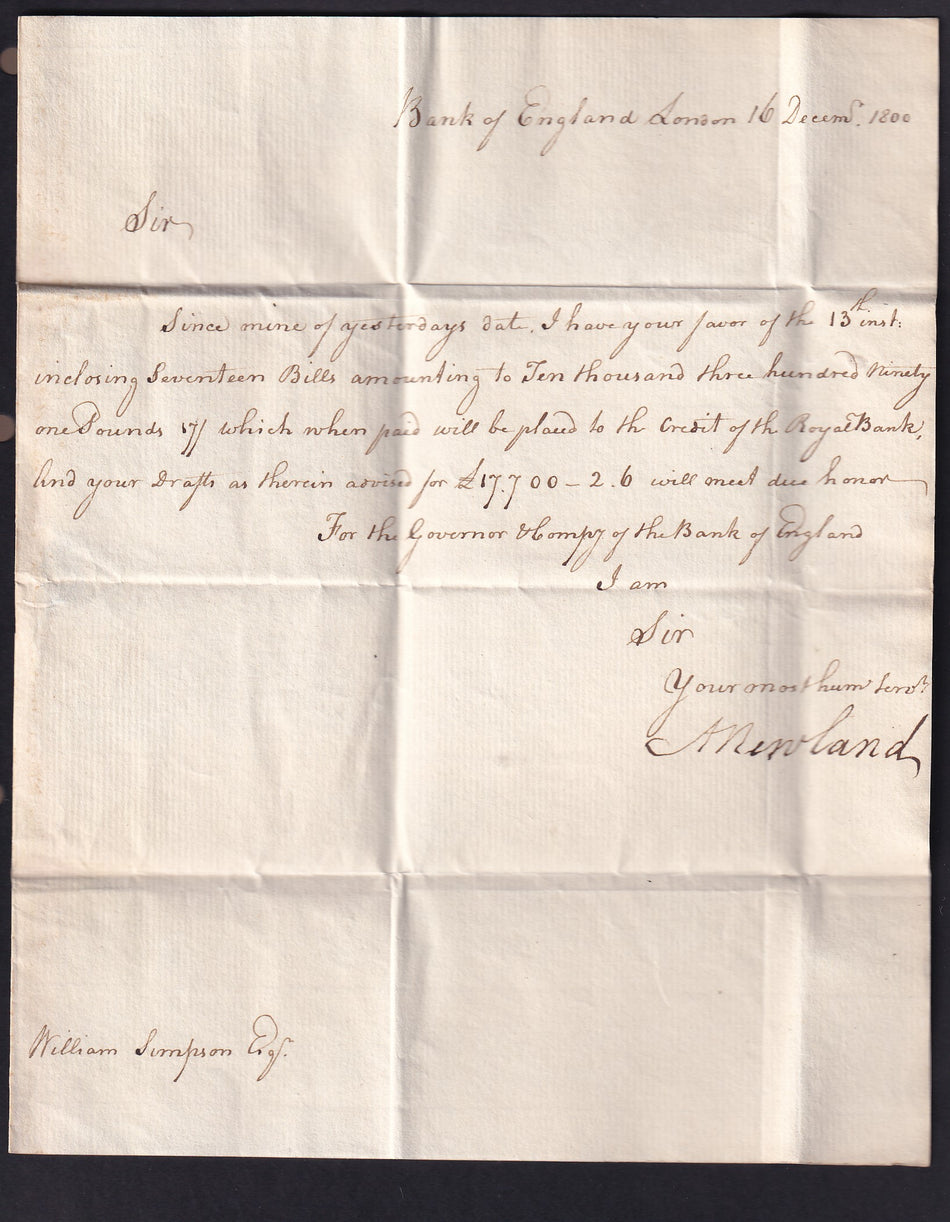 Bank of England London 16 Decemr. 1800
Sir
Since mine of yesterdays date, I have your favor of the 13th inst:
inclosing Seventeen Bills amounting to Ten thousand three hundred Ninety
one Pounds 17/ which when paid will be placed to the Credit of the Royal Bank,
And your Drafts as therein advised for £17.700 - 2.6 will meet due honor
For the Governor & Compy of the Bank of England
I am
Sir
Your most hum Servt
A Newland
William Simpson Esqr.